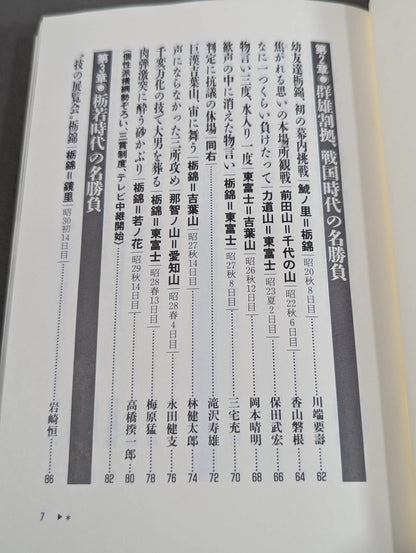 第2章●群雄割拠、戦国時代の名勝負
幼友達栃錦、初の幕内挑戦[鯱ノ里=栃錦|昭20秋8日目] 川端要壽 62
焦がれる思いの本場所観戦[前田山=千代の山|昭22秋6日目] 香山磐根 64
なに一つくらい負けたって[力道山=東富士|昭23夏2日目] 保田武宏 66
物言い三度、水入り一度[東富士=吉葉山|昭26秋12日目] 岡本晴明 68
歓声の中に消えた物言い[栃錦=東富士|昭27秋7日目] 三宅充 70
判定に抗議の休場[同右] 滝沢寿雄 72
巨漢吉葉山、宙に舞う[栃錦=吉葉山|昭27秋14日目] 林健太郎 74
声にならなかった三所攻め[那智ノ山=愛知山|昭28春4日目] 永田健支 76
千変万化の技で大男を葬る[栃錦=東富士|昭28春13日目] 梅原猛 78
肉弾激突に酔う砂かぶり[栃錦=若ノ花|昭29秋14日目] 高橋揆一郎 80
(個性派横綱勢ぞろい、三賞制度、テレビ中継開始) 82
第3章●栃若時代の名勝負
"技の展覧会"栃錦[栃錦=鏡里|昭30初14日目] 岩崎恒 86
7 ▶*